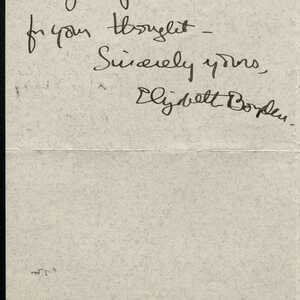 for your thought –
Sincerely yours,
Elizabeth Boyden.